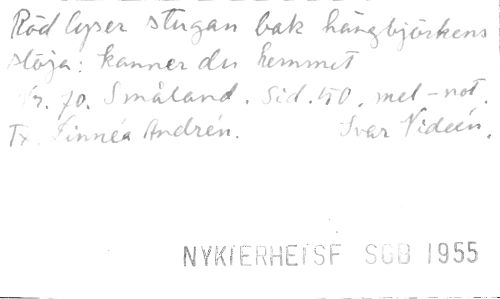 Röd lyser stugan bak hängbjörkens
slöja: känner du hemmet
Nr. 70. Småland. Sid. 150. mel-not.
Tx. Linnéa Andrén. Ivar Vidéen.
NYKTERHETSF SGB 1955